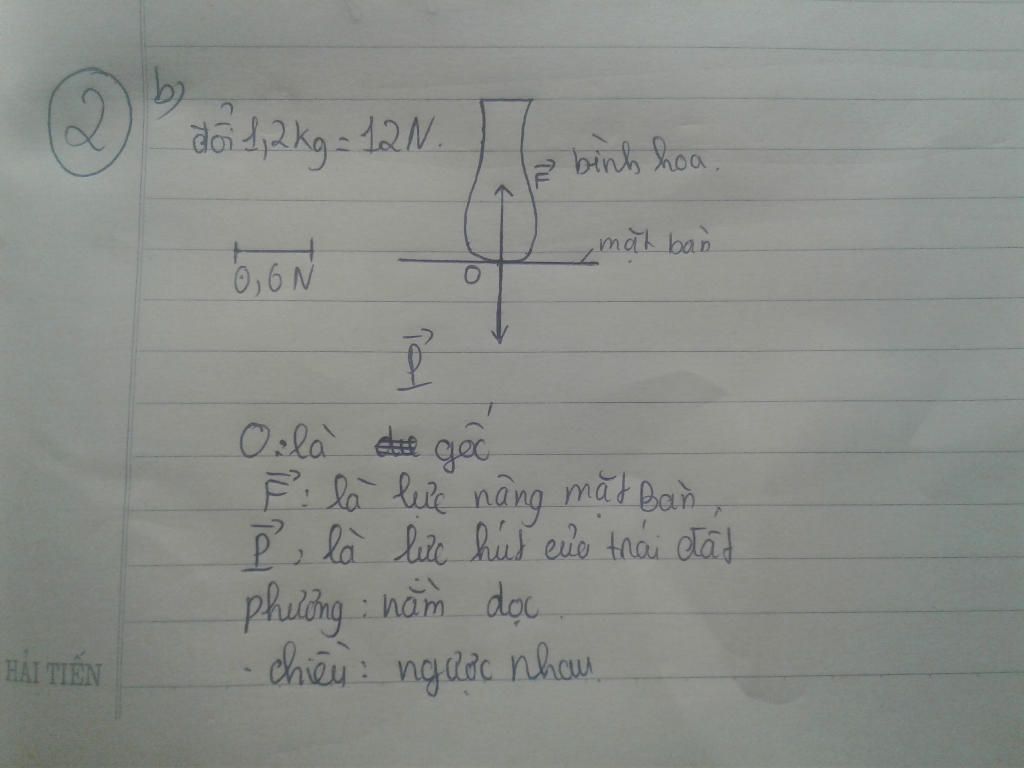 2 b)
đổi 1,2kg = 12N.
F bình hoa.
mặt bàn
0,6N
O
P
O: là gốc
F: là lực nâng mặt Bàn,
P, là lực hút của trái đất
phương: nằm dọc.
- chiều: ngược nhau.
HẢI TIẾN